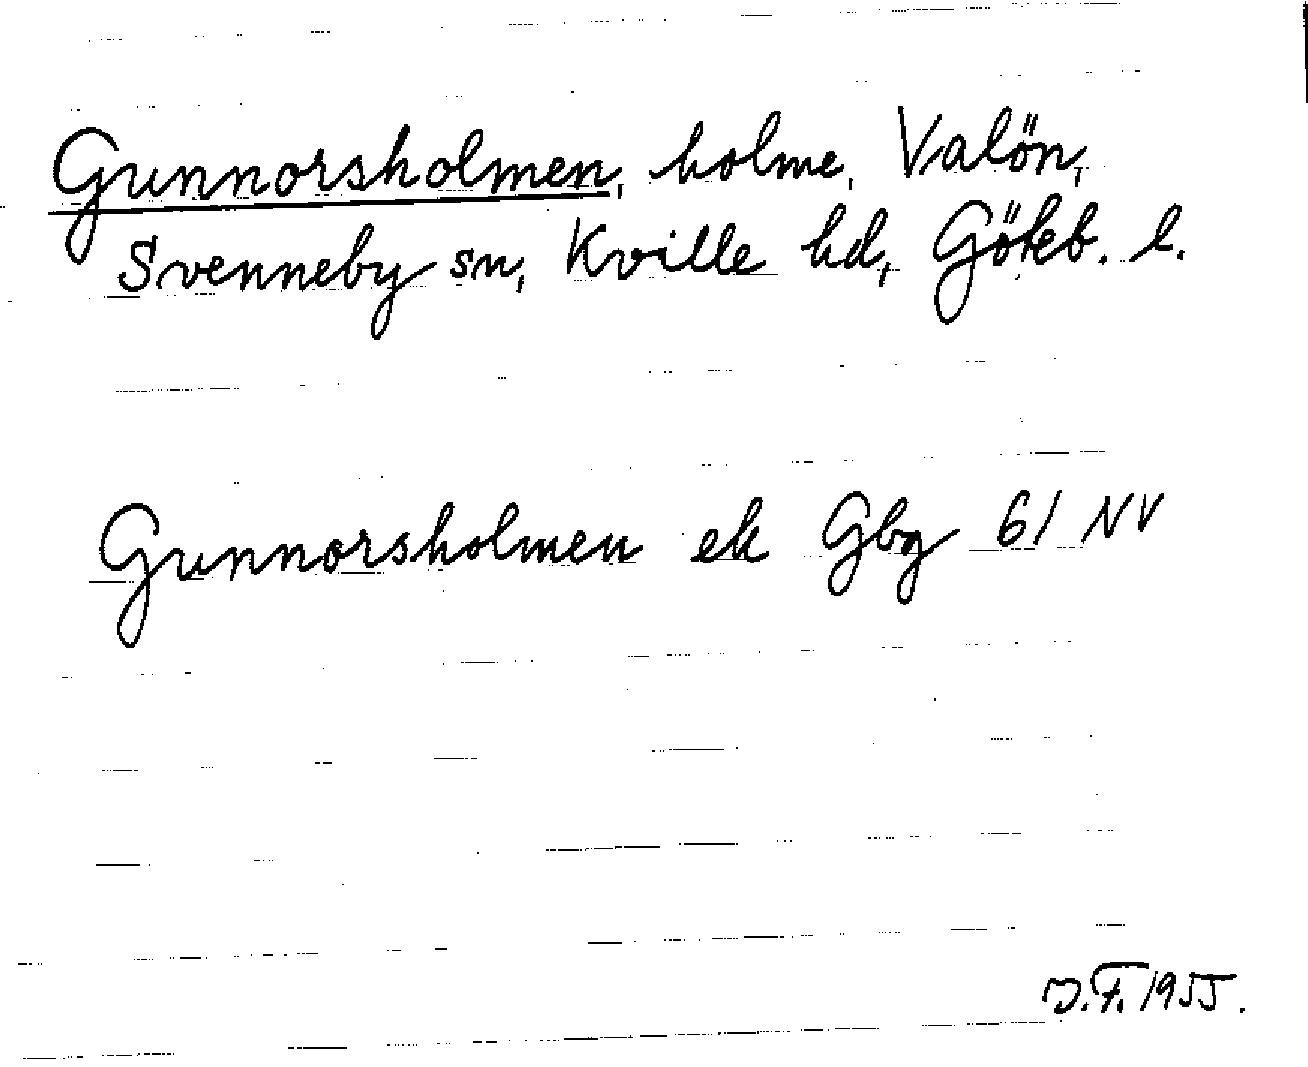 Gunnorsholmen, holme, Valön,
Svenneby sn, Kville hd, Göteb. l.
Gunnorsholmen ek Gbg 61 NV
J.F. 1955.